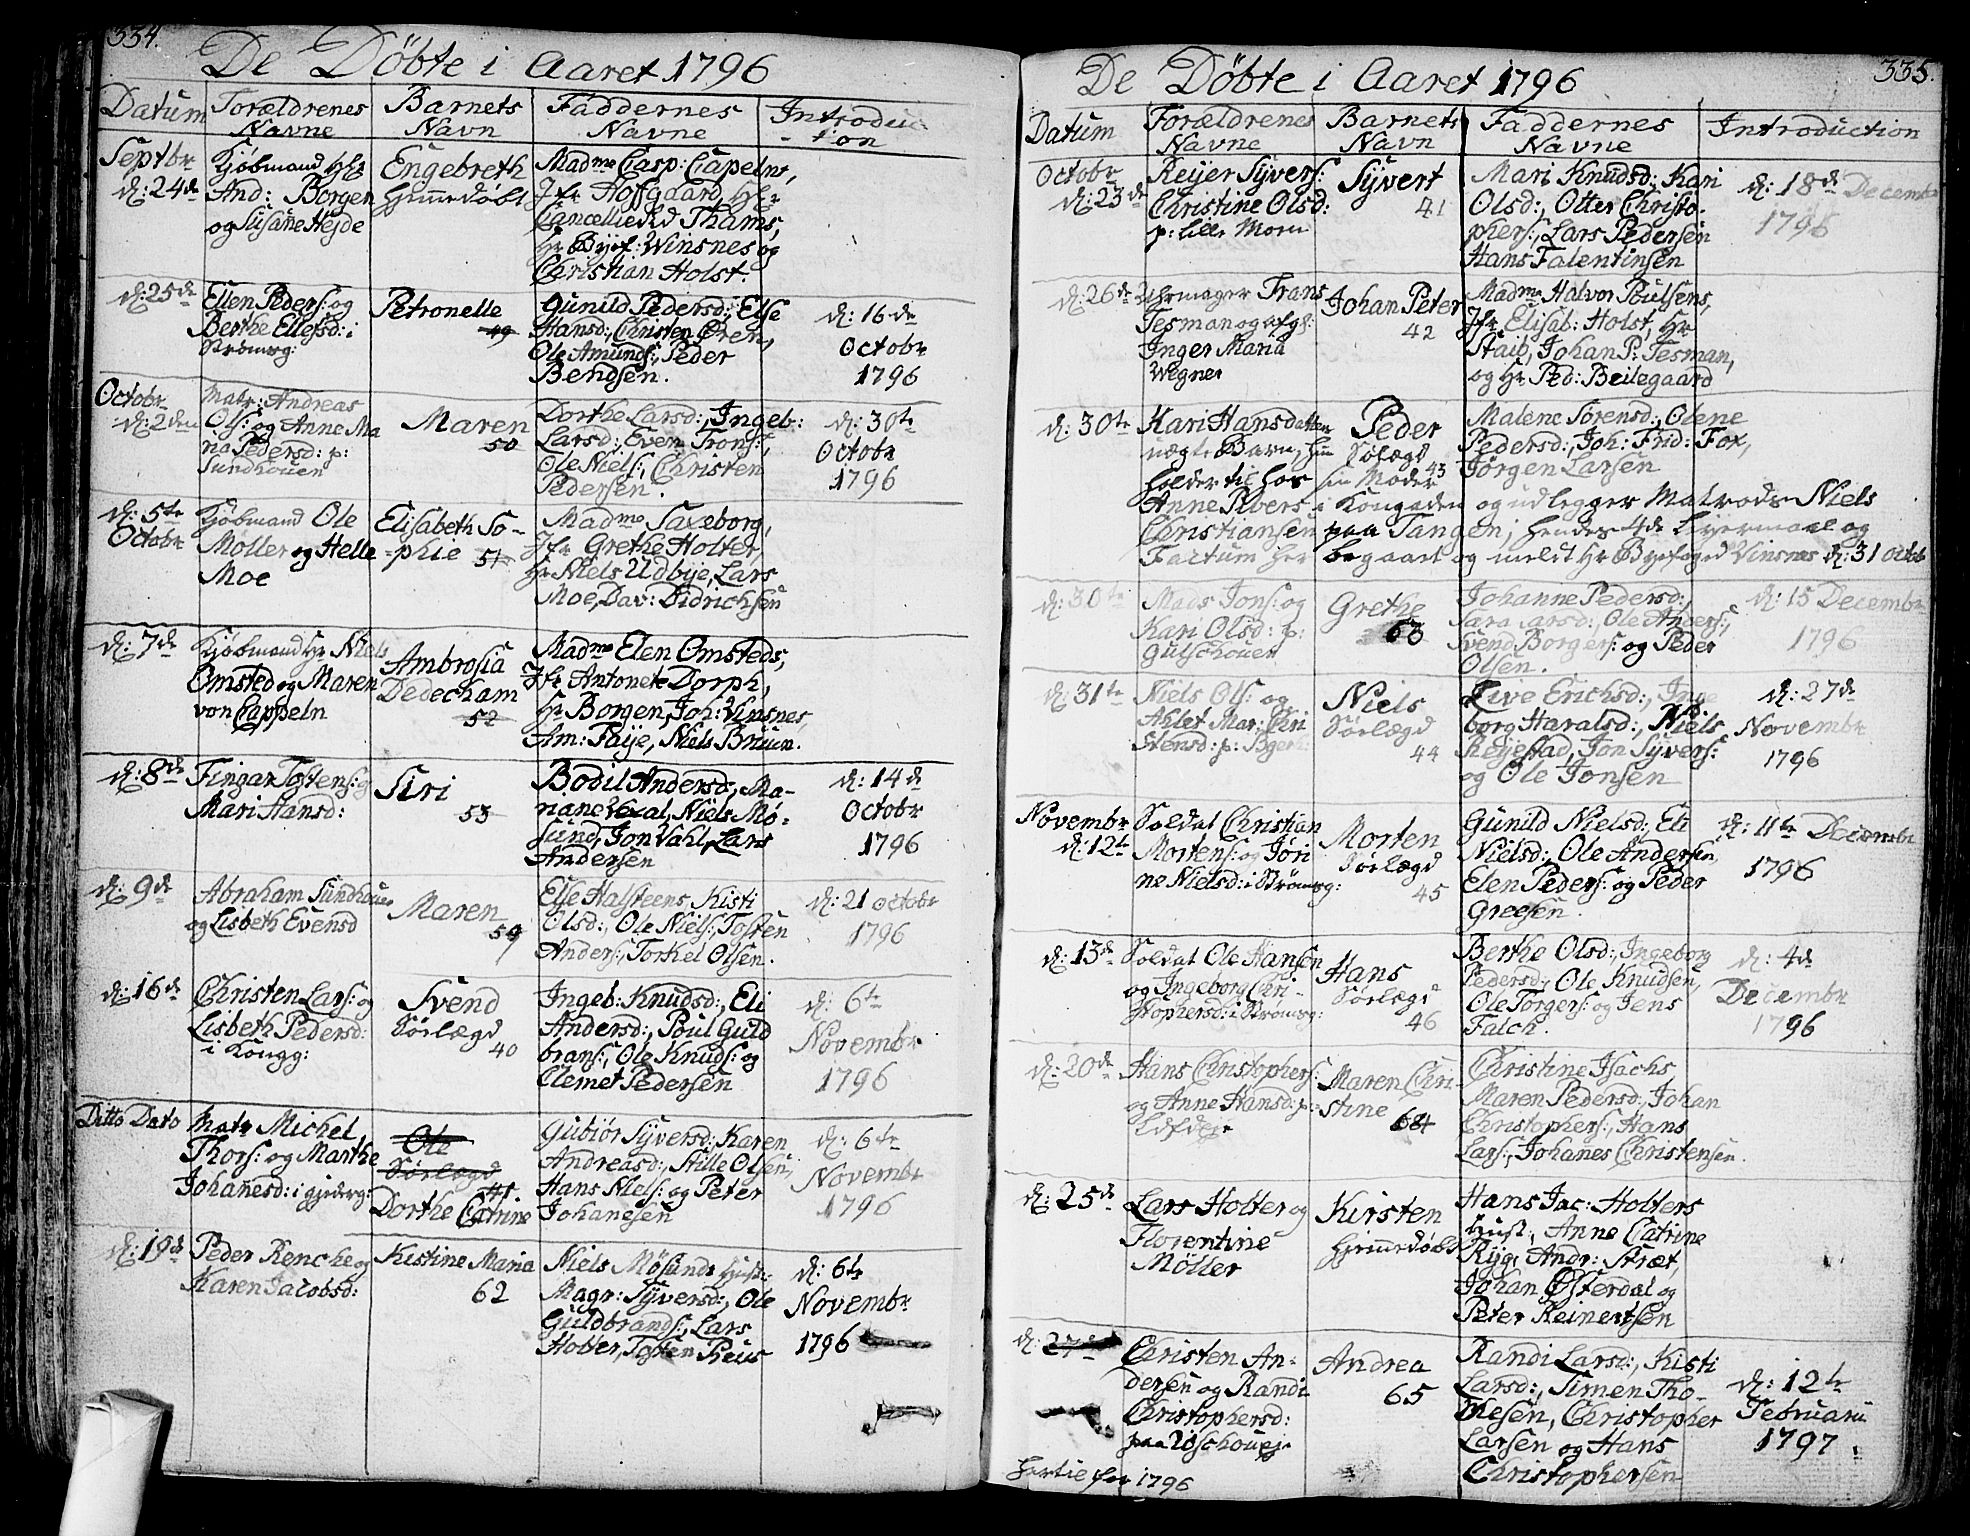 334.
De Döbte i Aaret 1796
Datum
Forældrenes Navne
Barnets Navn
Faddernes Navne
Introduction
Septbr
d: 24de
Kjøbmand Hr
And: Borgen
og Susane Hejde
Engebreth
Hjemedøbt
Madme Casp: Capelns,
Jfr Hoffgaard, Hr
Cancelieraad Thams,
Hr Byef: Winsnes og
Christian Holst.
d: 25de
Ellen Peders: og
Berthe Ellefsd: i
Strømsg:
Petronelle
49
Gunild Pedersd:, Else
Hansd:, Christen Ører,
Ole Amunds:, Peder
Bendsen.
d: 16de
Octobr
1796
Octobr
d: 2den
Matr: Andreas
Ols: og Anne Ma
ria Pedersd: p:
Sundhouen
Maren
50
Dorthe Larsd:, Ingeb:
Larsd:, Even Frons:,
Ole Niels:, Christen
Pedersen.
d: 30te
Octobr
1796
d: 5te
Octobr
Kjøbmand Ole
Moller og Helle
Moe
Elisabeth So-
-phie 51
Madme Saxeborg,
Jfr Grethe Holter,
Hr Niels Udbye, Lars
Moe, Dav: Didrichsen
d: 7de
Kjøbmand Hr Niels
Omsted og Maren
von Cappeln
Ambrosia
Dedecham
52
Madme Elen Omsteds,
Jfr Antonete Dorph,
Hr Borgen, Joh: Vinsnes,
Am: Paye, Niels Bruun.
d: 8de
Fingar Tostens: og
Mari Hansd:
Siri
53
Bodil Andersd:, Ma-
riane Vexal, Niels Mø-
sund, Jon Vahl, Lars
Andersen
d: 14de
Octobr
1796
d: 9de
Abraham Sundhouen
og Lisbeth Evensd
Maren
54
Else Halsteens, Kisti
Olsd:, Ole Niels:, Tosten
Anders:, Torkel Olsen.
d: 21 octobr
1796
d: 16de
Christen Lars: og
Lisbeth Pedersd:
i Kongg:
Svend
Sørlægd
40
Ingeb: Knudsd:, Eli
Andersd:, Poul Guld
brans:, Ole Knuds: og
Clemet Pedersen
d: 6te
Novembr
1796
Ditto Dato
Matr Michel
Thors: og Marthe
Johanesd: i gjederg:
Ole
Sørlægd
41
Dorthe Catrine
Gubiør Syversd:, Karen
Andreasd:, Stille Olsen,
Hans Niels: og Peter
Johanesen
d: 6te
Novembr
1796
d: 19de
Peder Rencke og
Karen Jacobsd:
Kistine Maria
62
Niels Mösunds Hust:
Magr: Syversd:, Ole
Guldbrands:, Lars
Holter, Tosten Preus
d: 6te
Novembr
1796
335.
De Döbte i Aaret 1796
Datum
Forældrenes Navne
Barnets Navn
Faddernes Navne
Introduction
Octobr
d: 23de
Reijer Syvers:
Christine Olsd:
p: Lille Moen
Syvert
41
Mari Knudsd:, Kari
Olsd:, Otter Christo-
phers:, Lars Pedersen
Hans Falentinsen
d: 18de Decembr
1796
d: 26de
Uhrmager Frans
Tesman og afgl:
Inger Maria
Wegner
Johan Peter
42
Madme Halvor Poulsens,
Jfr Elisab: Holst, Hr
Staib, Johan P: Tesman,
og Hr Ped: Beilegaard
d: 30te
Kari Hansdatter
uægte Barn, hun
holder til hos
Anne Pibers
Christiansen
Factum her
Peder
Sølægd
43
sin Moder
Malene Sørensd:, Olene
Pedersd:, Joh: Frid: Fox,
Jørgen Larsen
i Kongaden og udlegger Matrods Niels
paa Tangen, hendes 4de Leyermaal og
begaaet og meldt Hr Byefoged Vinsnes d: 31 octobr
d: 30te
Mads Jons: og
Kari Olsd: p:
Gulschouen
Grethe
63
Johanne Pedersd:,
Sara Larsd:, Ole Anders:,
Svend Borgers: og Peder
Olsen.
d: 15 Decembr
1796
d: 31te
Niels Ols: og
Ahlet Mar: Chri
stensd: p: Bger:
Niels
Sørlægd
44
Live Erichsd:, Inge
borg Haralsd:, Niels
Reyestad, Jon Syvers:
og Ole Jonsen
d: 27de
Novembr
1796
Novembr
d: 12te
Soldat Christian
Mortens: og Jøri
ne Nielsd: i Strømsg:
Morten
Sørlægd
45
Gunild Nielsd:, Eli
Nielsd:, Ole Andersen,
Elen Peders: og Peder
Greesen.
d: 11te Decembr
1796
d: 13de
Soldat Ole Hansen
og Ingeborg Chri-
stophersd: i Strømsg:
Hans
Sørlægd
46
Berthe Olsd:, Ingeborg
Pedersd:, Ole Knudsen,
Ole Torgers: og Jens
Falch.
d: 4de
Decembr
1796
d: 20de
Hans Christophers:
og Anne Hansd: p:
Maren Chri-
stine 64
Christine Isachs
Maren Pedersd:, Johan
Christophers:, Hans
Lars:, Johanes Christensen.
d: 25de
Lars Holter og
Florentine
Möller
Kirsten
Hjemedøbt
Hans Jac: Holters
Hust:, Anne Catrine
Ryg, Andr: Stræt,
Johan Østerdal og
Peter Reinertsen
d: 27de
Christen An-
dersen og Randi
Christophersd:
paa
Andrea
65
Randi Larsd:, Kisti
Larsd:, Simen Tho-
mesen, Christopher
Larsen og Hans
Christophersen
d: 12te
Februarii
1797.
hertil for 1796